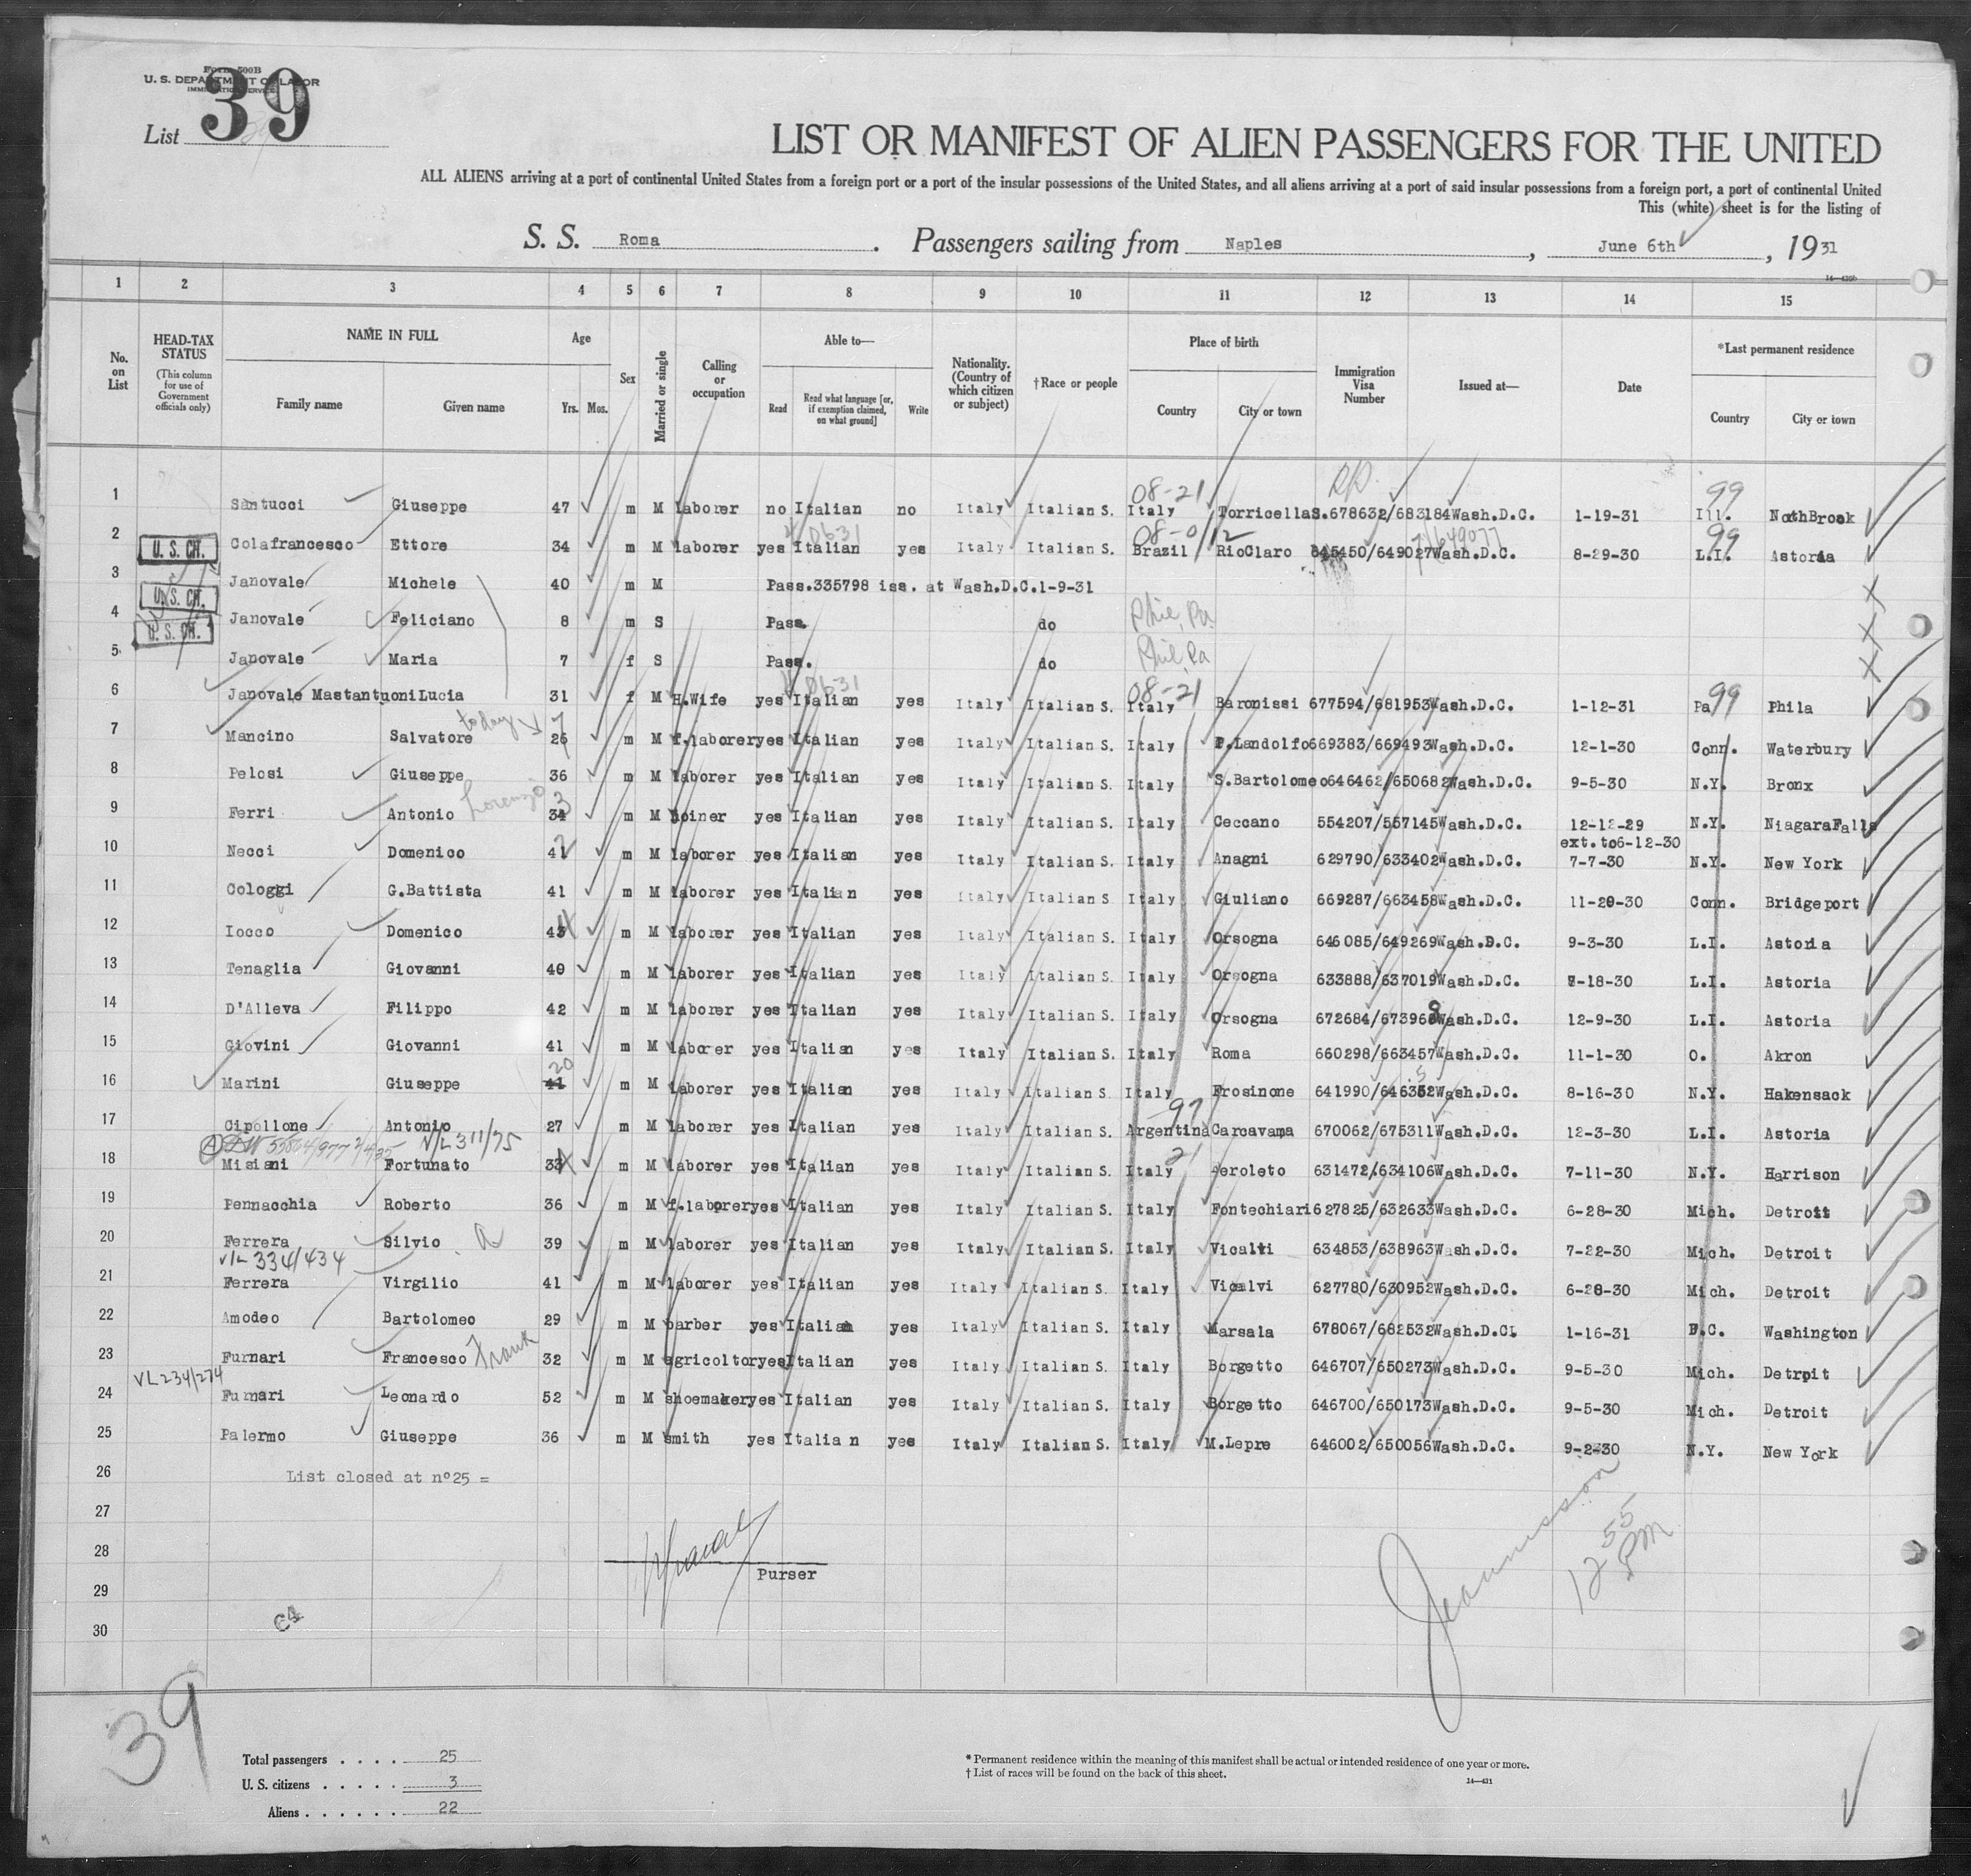 Form 500B
U. S. DEPARTMENT OF LABOR
IMMIGRATION SERVICE
List 39
LIST OR MANIFEST OF ALIEN PASSENGERS FOR THE UNITED
ALL ALIENS arriving at a port of continental United States from a foreign port or a port of the insular possessions of the United States, and all aliens arriving at a port of said insular possessions from a foreign port, a port of continental United
This (white) sheet is for the listing of
S. S. Roma. Passengers sailing from Naples, June 6th, 1931
1 2 3 4 5 6 7 8 9 10 11 12 13 14 15
No. on List
HEAD-TAX STATUS
(This column for use of Government officials only)
NAME IN FULL
Family name Given name
Age
Yrs. Mos.
Sex
Married or single
Calling or occupation
Able to—
Read Read what language [or, if exemption claimed, on what ground] Write
Nationality. (Country of which citizen or subject)
†Race or people
Place of birth
Country City or town
Immigration Visa Number
Issued at—
Date
*Last permanent residence
Country City or town
08-21 99
1 Santucci Giuseppe 47 m M laborer no Italian no Italy Italian S. Italy TorricellaS. 678632/683184 Wash.D.C. 1-19-31 Ill. NothBrook
08-0/12 649077 99
2 U. S. CH. Colafrancesco Ettore 34 m M laborer yes Italian yes Italy Italian S. Brazil RioClaro 645450/649027 Wash.D.C. 8-29-30 L.I. Astoria
3 U. S. CH. Janovale Michele 40 m M Pass.335798 iss. at Wash.D.C.1-9-31
4 U. S. CH. Janovale Feliciano 8 m S Pass. do Phil, Pa.
5 Janovale Maria 7 f S Pass. do Phil, Pa
08-21 99
6 Janovale Mastantuoni Lucia 31 f M H.Wife yes Italian yes Italy Italian S. Italy Baronissi 677594/681953 Wash.D.C. 1-12-31 Pa Phila
today 7
7 Mancino Salvatore 26 m M f.laborer yes Italian yes Italy Italian S. Italy P.Landolfo 669383/669493 Wash.D.C. 12-1-30 Conn. Waterbury
8 Pelosi Giuseppe 36 m M laborer yes Italian yes Italy Italian S. Italy S.Bartolomeo 646462/650682 Wash.D.C. 9-5-30 N.Y. Bronx
9 Ferri Antonio Lorenzo 34 3 m M joiner yes Italian yes Italy Italian S. Italy Ceccano 554207/557145 Wash.D.C. 12-12-29 N.Y. NiagaraFalls
ext.to6-12-30
10 Necci Domenico 41 2 m M laborer yes Italian yes Italy Italian S. Italy Anagni 629790/633402 Wash.D.C. 7-7-30 N.Y. New York
11 Cologgi G.Battista 41 m M laborer yes Italian yes Italy Italian S. Italy Giuliano 669287/663458 Wash.D.C. 11-20-30 Conn. Bridgeport
12 Iocco Domenico 43 4 m M laborer yes Italian yes Italy Italian S. Italy Orsogna 646085/649269 Wash.D.C. 9-3-30 L.I. Astoria
13 Tenaglia Giovanni 40 m M laborer yes Italian yes Italy Italian S. Italy Orsogna 633888/637019 Wash.D.C. 7-18-30 L.I. Astoria
14 D'Alleva Filippo 42 m M laborer yes Italian yes Italy Italian S. Italy Orsogna 672684/673968 Wash.D.C. 12-9-30 L.I. Astoria
15 Giovini Giovanni 41 m M laborer yes Italian yes Italy Italian S. Italy Roma 660298/663457 Wash.D.C. 11-1-30 O. Akron
20
16 Marini Giuseppe 41 m M laborer yes Italian yes Italy Italian S. Italy Frosinone 641990/646352 Wash.D.C. 8-16-30 N.Y. Hakensack
97
17 Cipollone Antonio 27 m M laborer yes Italian yes Italy Italian S. Argentina Carcavama 670062/675311 Wash.D.C. 12-3-30 L.I. Astoria
V/L 311/75 21
18 Misiani Fortunato 33 m M laborer yes Italian yes Italy Italian S. Italy Feroleto 631472/634106 Wash.D.C. 7-11-30 N.Y. Harrison
19 Pennacchia Roberto 36 m M f.laborer yes Italian yes Italy Italian S. Italy Fontechiari 627825/632633 Wash.D.C. 6-28-30 Mich. Detroit
20 Ferrera Silvio 39 m M laborer yes Italian yes Italy Italian S. Italy Vicalvi 634853/638963 Wash.D.C. 7-22-30 Mich. Detroit
V/L 334/434
21 Ferrera Virgilio 41 m M laborer yes Italian yes Italy Italian S. Italy Vicalvi 627780/630952 Wash.D.C. 6-28-30 Mich. Detroit
22 Amodeo Bartolomeo 29 m M barber yes Italian yes Italy Italian S. Italy Marsala 678067/682532 Wash.D.C. 1-16-31 D.C. Washington
23 Furnari Francesco Frank 32 m M agricoltor yes Italian yes Italy Italian S. Italy Borgetto 646707/650273 Wash.D.C. 9-5-30 Mich. Detroit
VL 234/274
24 Furnari Leonardo 52 m M shoemaker yes Italian yes Italy Italian S. Italy Borgetto 646700/650173 Wash.D.C. 9-5-30 Mich. Detroit
25 Palermo Giuseppe 36 m M smith yes Italian yes Italy Italian S. Italy M.Lepre 646002/650056 Wash.D.C. 9-2-30 N.Y. New York
26 List closed at nº25 =
27
28
Purser
29
30
Jeannisson
12 55 PM
39
Total passengers . . . . 25
U. S. citizens . . . . . 3
Aliens . . . . . . 22
* Permanent residence within the meaning of this manifest shall be actual or intended residence of one year or more.
† List of races will be found on the back of this sheet.
14—431